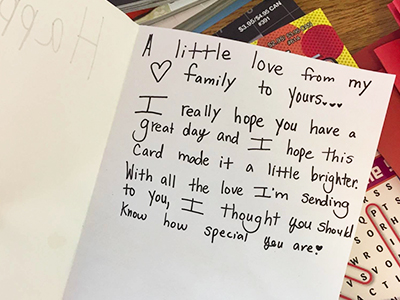 Happ
$3.95/$4.95 CAN
#391
A little love from my
♡ family to yours...
I really hope you have a
great day and I hope this
Card made it a little brighter.
With all the love I'm sending
to you, I thought you should
know how special you are.♥